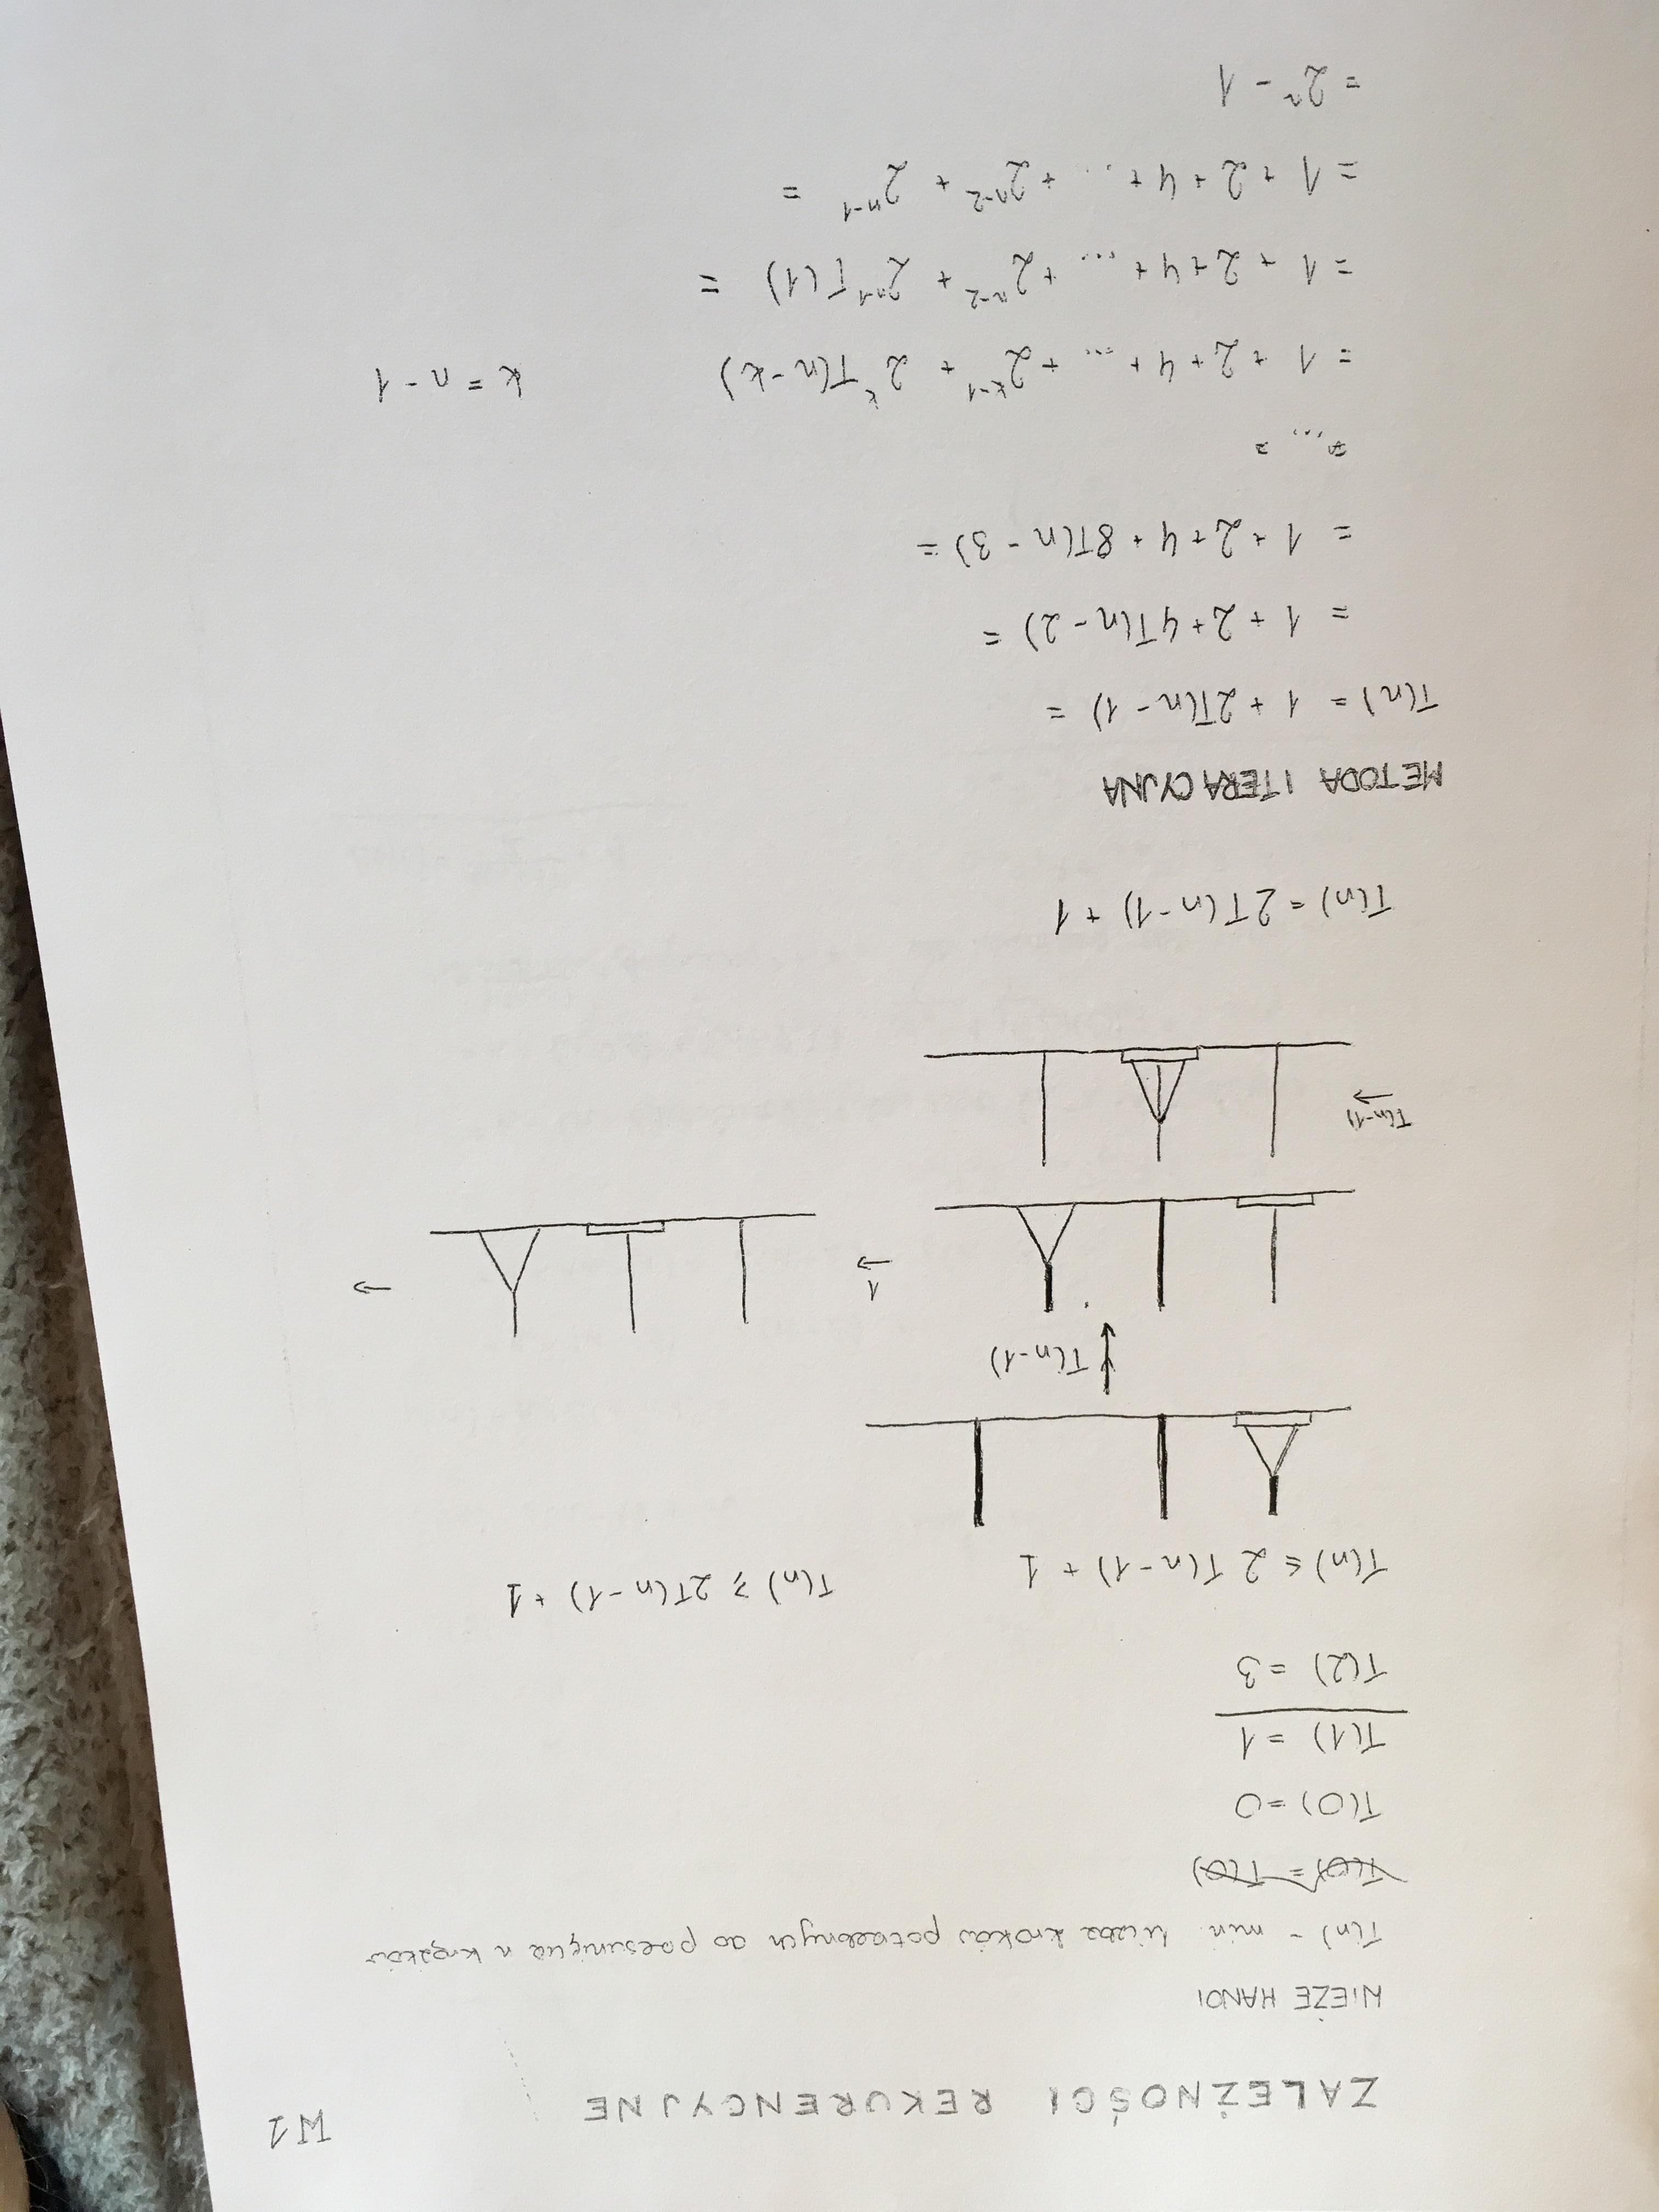 ZALEŻNOŚCI REKURENCYJNE
W1
WIEŻE HANOI
T(n) - min. liczba kroków potrzebnych do przesunięcia n krążków
T(0) = T(0)
T(0) = 0
T(1) = 1
T(2) = 3
T(n) ≤ 2 T(n-1) + 1
T(n) ≥ 2T(n-1) + 1
T(n-1)
1
→
T(n-1)
→
T(n) = 2T(n-1) + 1
METODA ITERACYJNA
T(n) = 1 + 2T(n-1) =
= 1 + 2 + 4T(n-2) =
= 1 + 2 + 4 + 8T(n-3) =
= ... =
= 1 + 2 + 4 + ... + 2^{k-1} + 2^k T(n-k)
k = n-1
= 1 + 2 + 4 + ... + 2^{n-2} + 2^{n-1} T(1) =
= 1 + 2 + 4 + ... + 2^{n-2} + 2^{n-1} =
= 2^n - 1